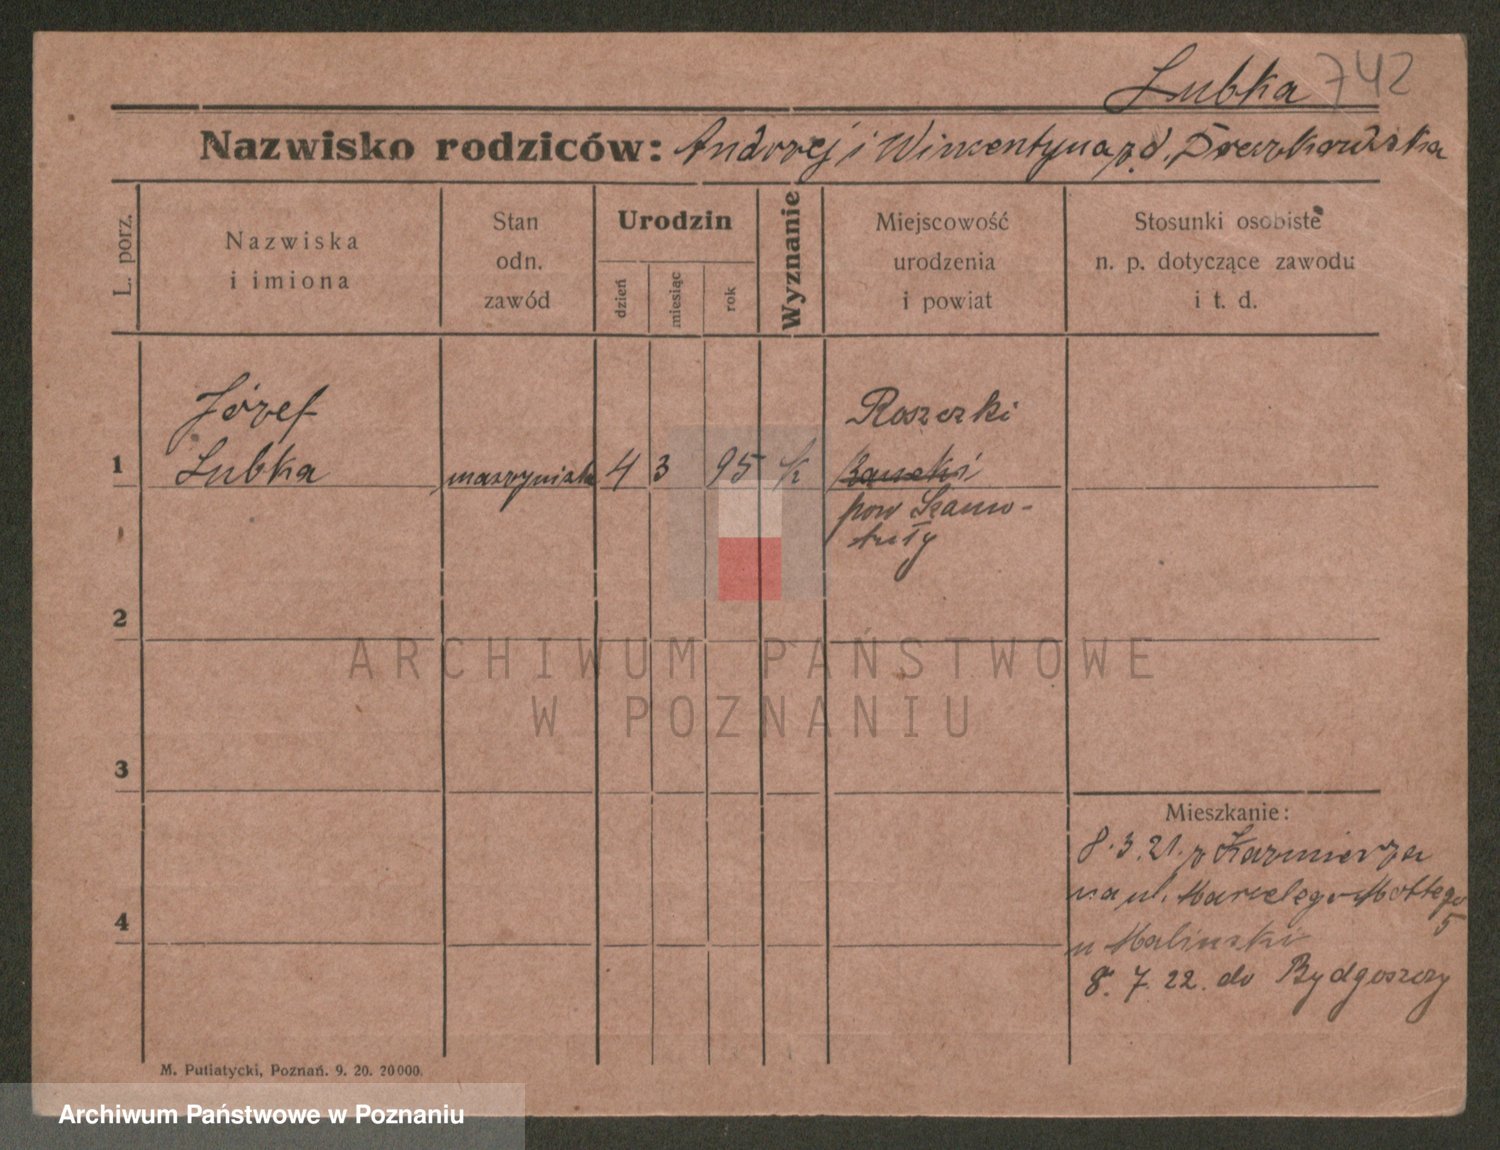 Lubka 742
Nazwisko rodziców: Andrzej i Wincentyna z d.
L. porz.
Nazwiska
i imiona
Stan
odn.
zawód
Urodzin
dzień
miesiąc
rok
Wyznanie
Miejscowość
urodzenia
i powiat
Stosunki osobiste
n. p. dotyczące zawodu
i t. d.
Józef
Roszczki
1 Lubka maszynista 4 3 95 k
pow Szamo-
tuły
2
ARCHIWUM PAŃSTWOWE
W POZNANIU
3
Mieszkanie:
8.3.21. z Kazmierza
na ul. Marcelego Mottego
5
4
u Malinski
8. 7. 22. do Bydgoszczy
M. Putiatycki, Poznań. 9. 20. 20000.
Archiwum Państwowe w Poznaniu